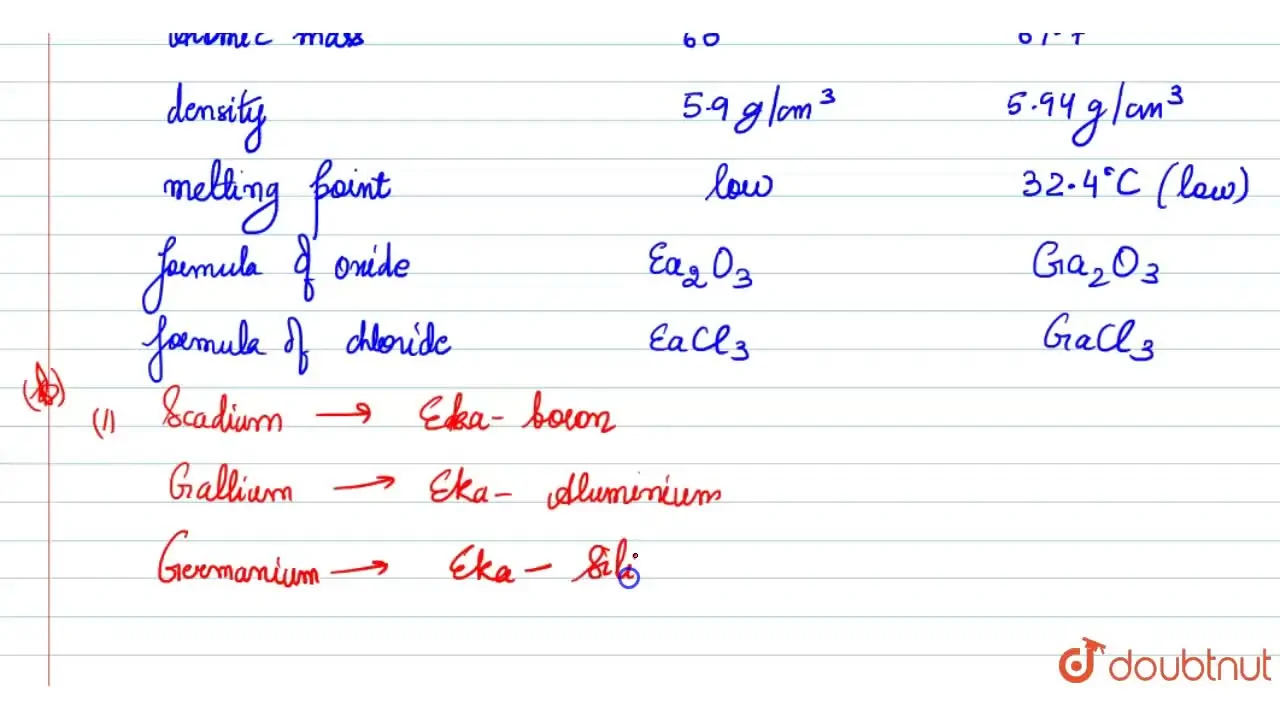 mass
density 5.9 g/cm³ 5.94 g/cm³
melting point low 32.4°C (low)
formula of oxide Ea₂O₃ Ga₂O₃
formula of chloride EaCl₃ GaCl₃
(b)
(1) Scadium → Eka- boron
Gallium → Eka- Aluminium
Germanium → Eka - Sili
doubtnut